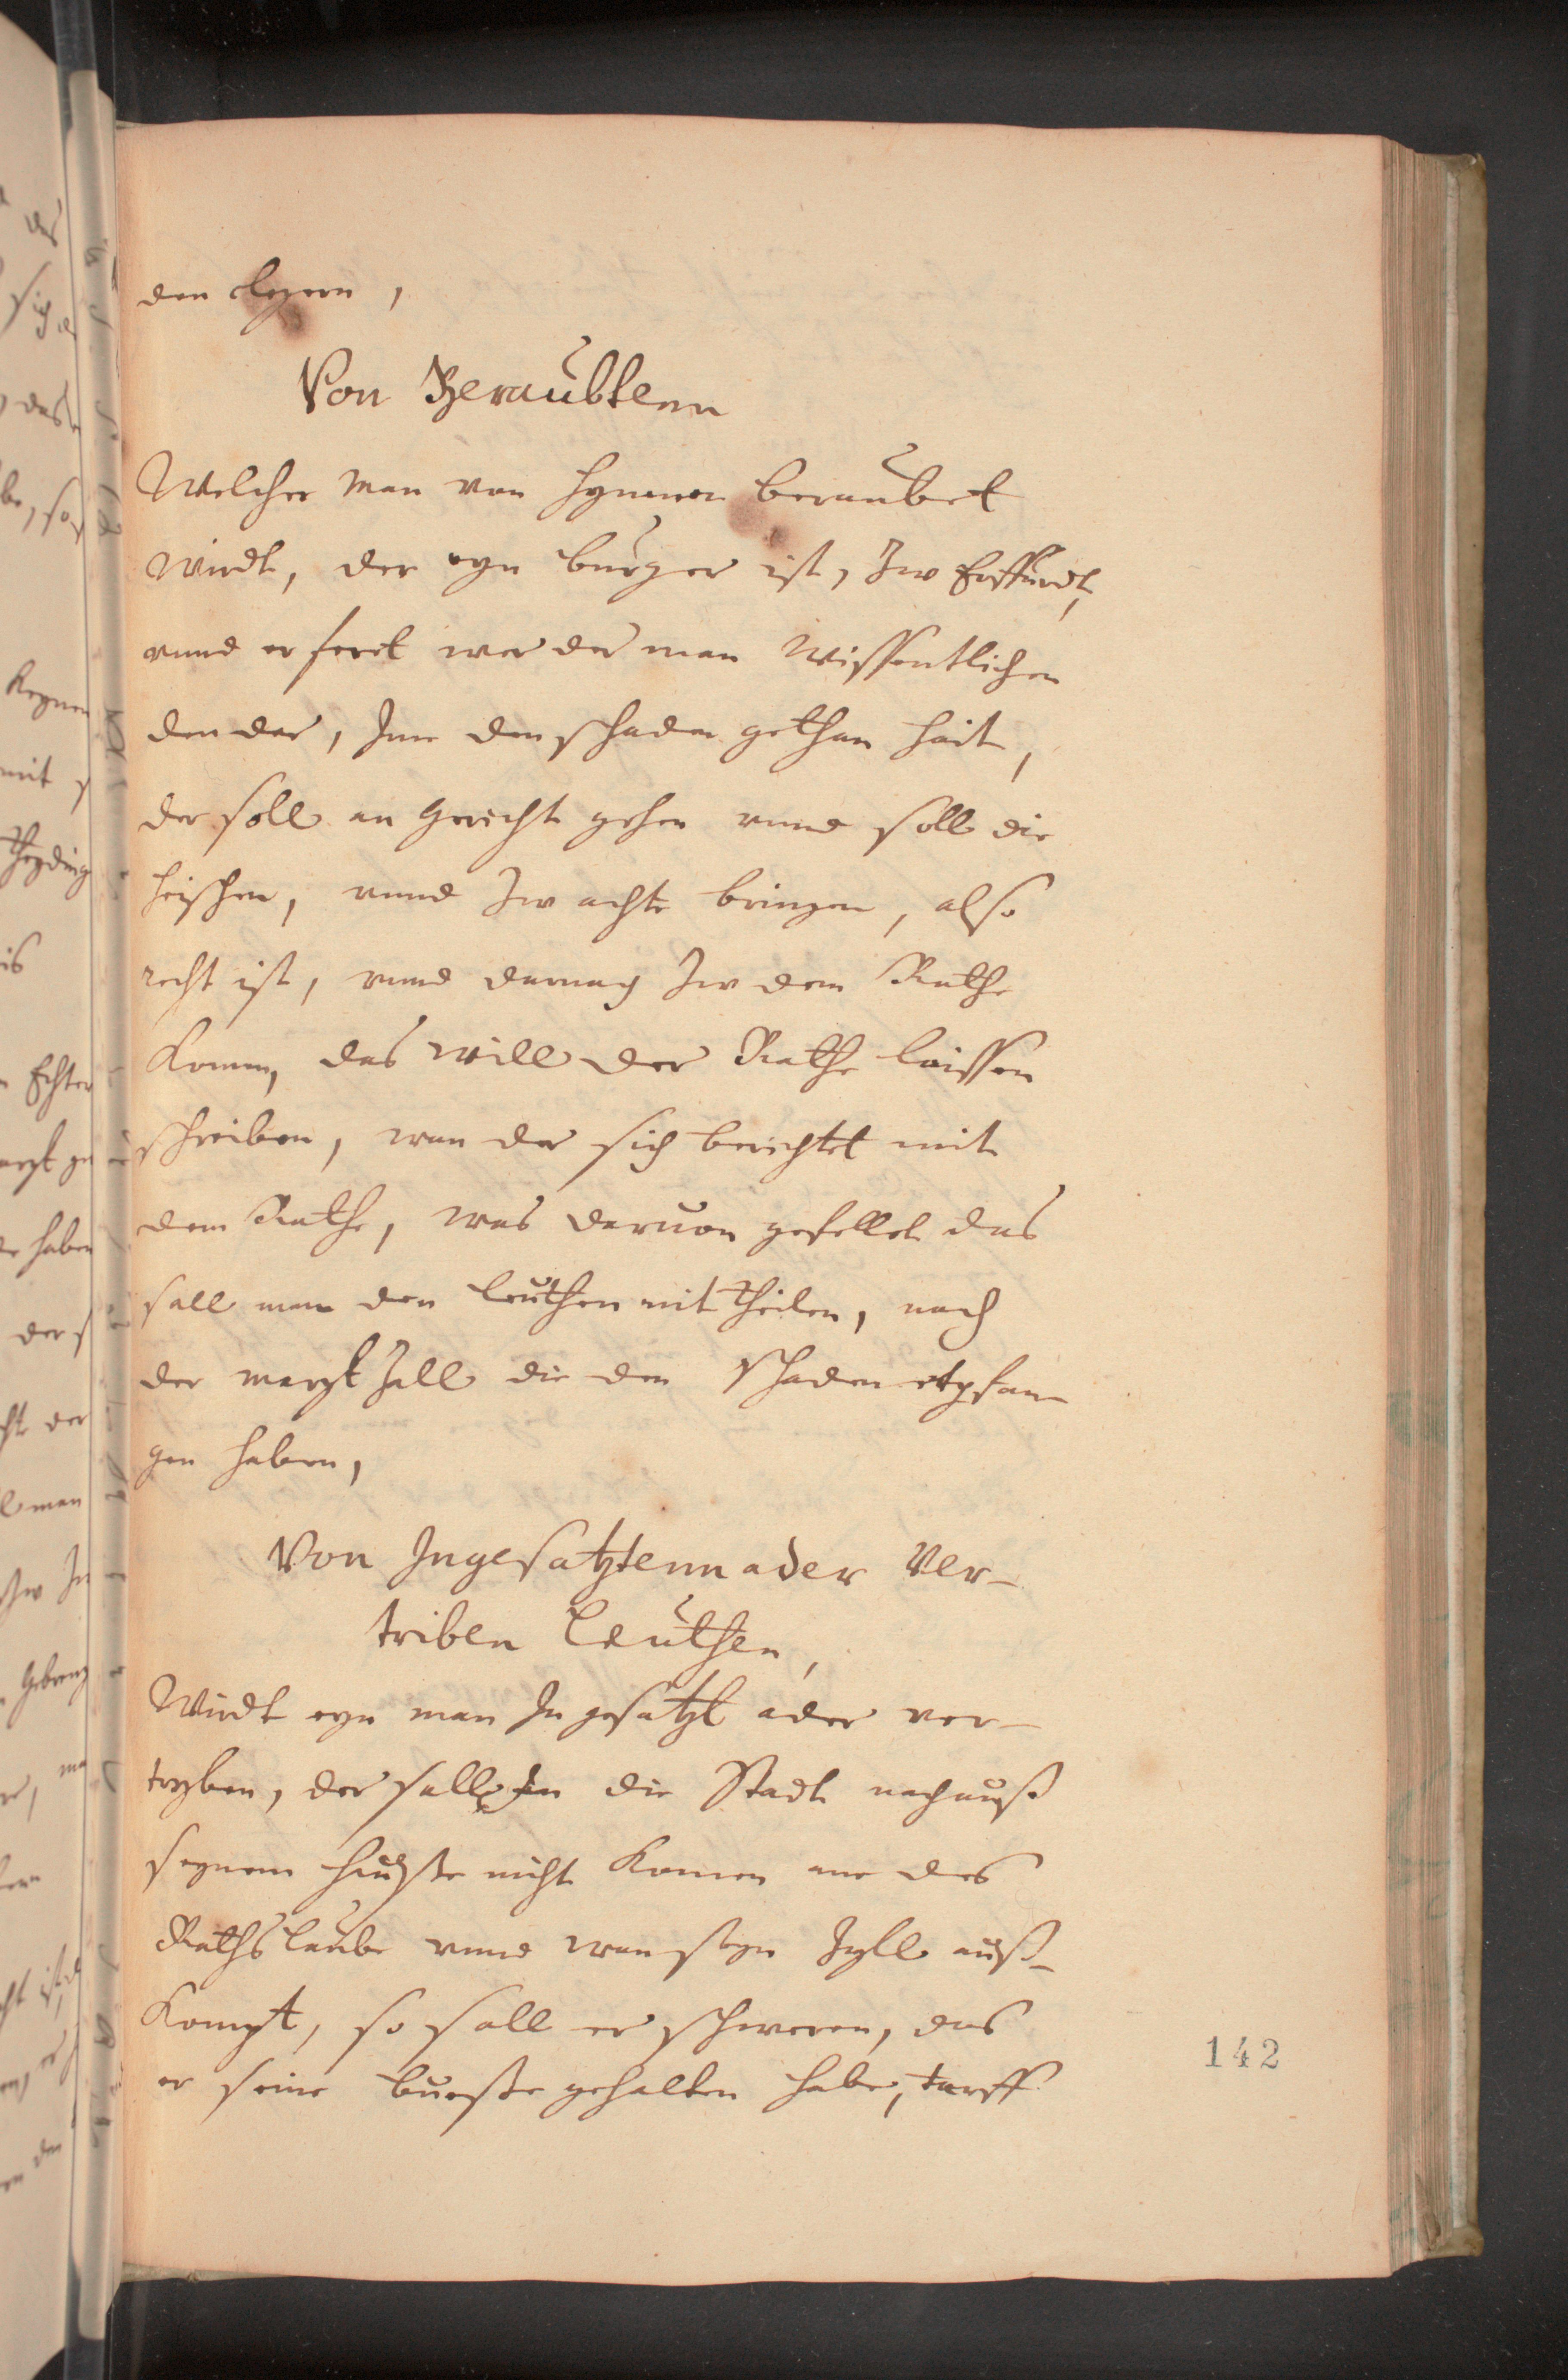 den clegern,
Von Beraubtenn
Welcher man von hynnen beraubet
wirdt, der eyn burger ist, Zw Erffurdt,
vnnd er feret wer der man wissentlichen
den der, Jme den schaden gethan hait,
der soll an gericht gehen vnnd soll die
heischen, vnnd Zw achte bringen, also
recht ist, vnnd darnach Zw dem Rathe
komen, das will der Rathe laissen
schreiben, wan der sich berichtet mit
dem Rathe, was daruon gefellet das
sall man den leuthen mit theilen, nach
der margkzall die den schaden etpfan
gen haben,
Von Jngesatztenn ader Ver-
triben Leuthen,
Wirdt eyn man Jngesatzt ader ver-
tryben, der sall in die Stadt nach auß
seynem hauße nicht komen ane des
Raths laube vnnd wan seyn Zyll auß-
kompt, so sall er schweren, das
er seine bueße gehalten habe, tarff
142